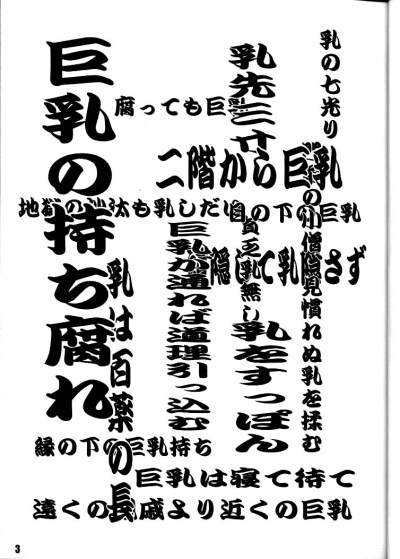 乳の七光り
乳先三寸
腐っても巨乳
二階から巨乳
地獄の沙汰も乳しだい
目の下の巨乳
の小僧見慣れぬ乳を揉む
隠して乳隠さず
巨乳の持ち腐れ
巨乳が通れば道理引っ込む
貧乏乳無し
乳をすっぽん
乳は百薬の長
縁の下の巨乳持ち
巨乳は寝て待て
遠くの親戚より近くの巨乳
3